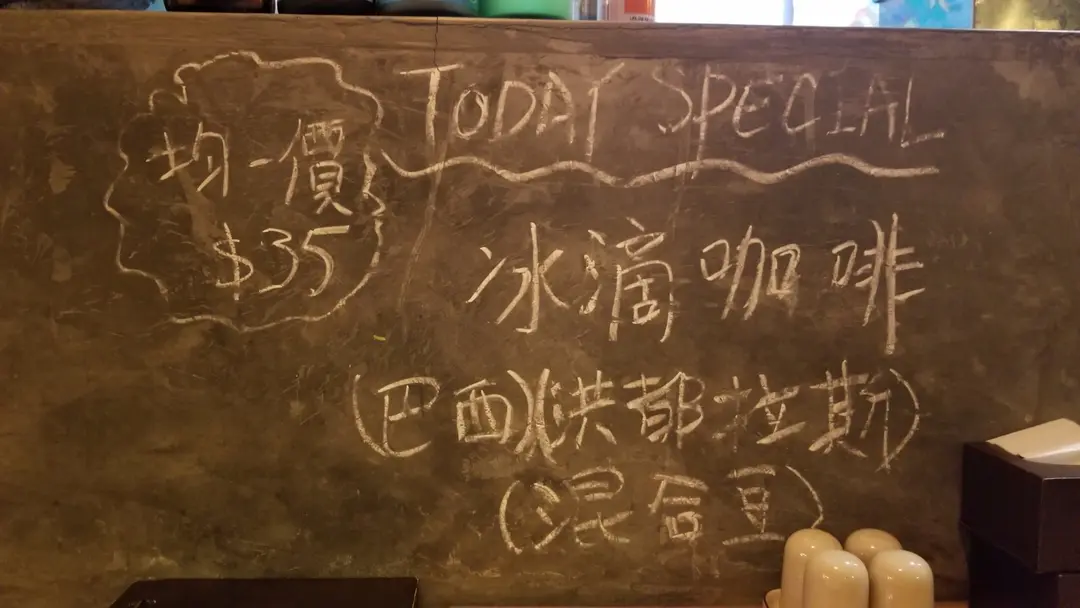 TODAY SPECIAL
均一價
$35
冰滴咖啡
(巴西)(洪都拉斯)
(混合豆)